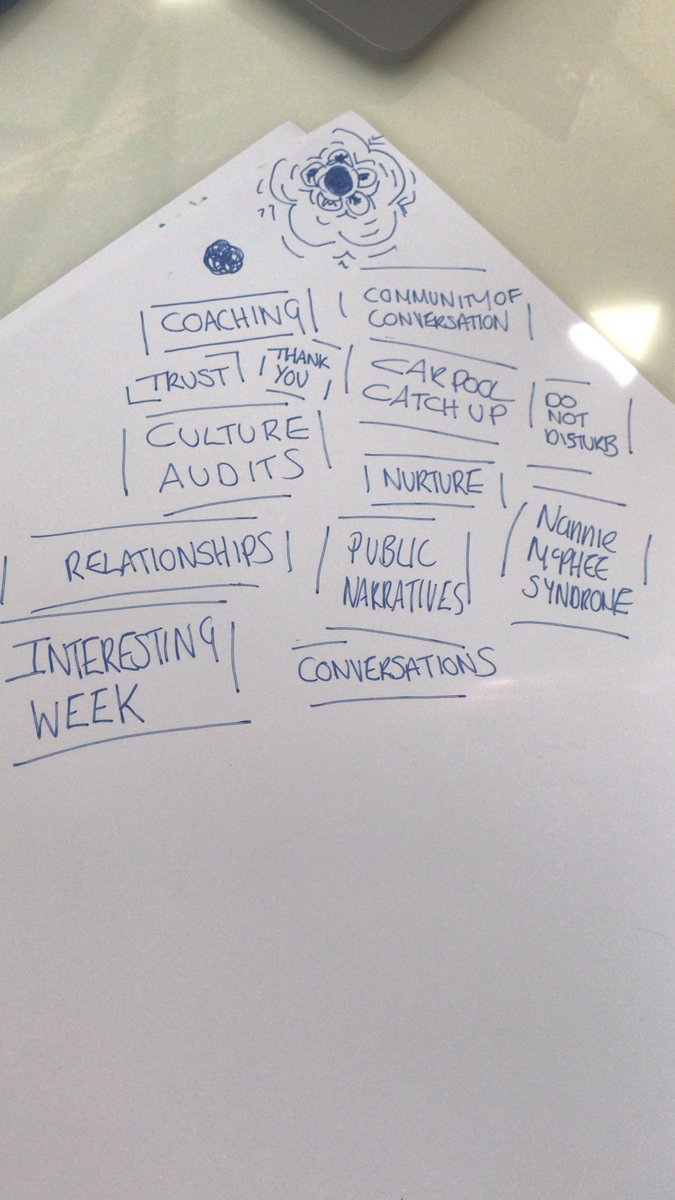 COACHING
COMMUNITY OF
CONVERSATION
TRUST
THANK
YOU
CAR POOL
CATCH UP
DO
NOT
DISTURB
CULTURE
AUDITS
NURTURE
RELATIONSHIPS
PUBLIC
NARRATIVES
Nannie
McPHEE
SYNDRONE
INTERESTING
WEEK
CONVERSATIONS